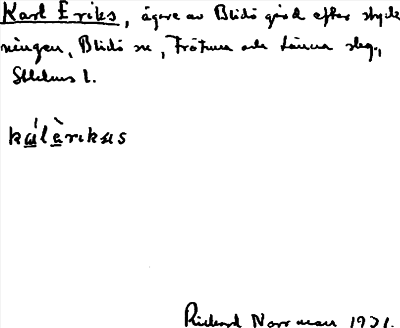 Karl Eriks, ägare av Blidö gård efter styck
ningen, Blidö sn, Frötuna och Länna skg.,
Sthlms l.
kálàrikas
Rickard Norrman 1931.